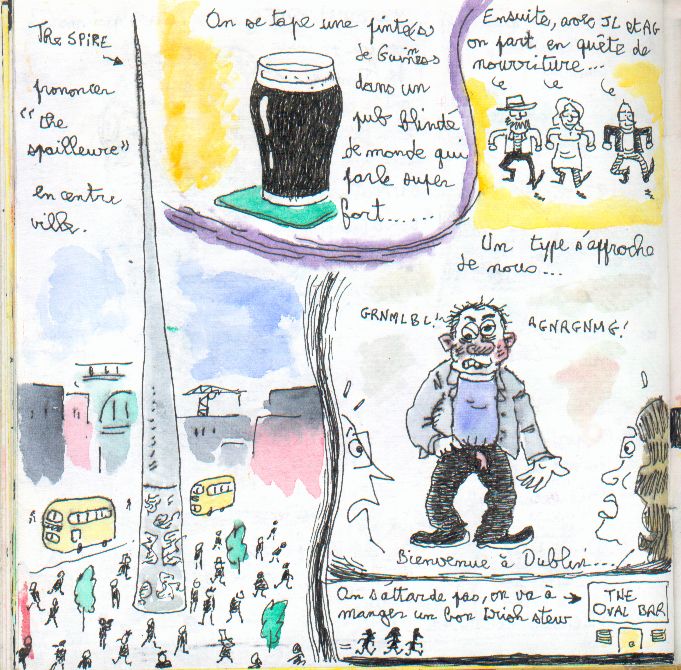 The SPIRE
prononcer
"the
spailleure"
en centre
ville.
On se tape une pinte(s)
de Guinness
dans un
pub blindé
de monde qui
parle super
fort......
Ensuite, avec JL et AG
on part en quête de
nourriture...
Un type s'approche
de nous...
GRNMLBL!
AGNRGNMG!
Bienvenue à Dublin...
On s'attarde pas, on va à
manger un bon Irish stew
THE
OVAL BAR